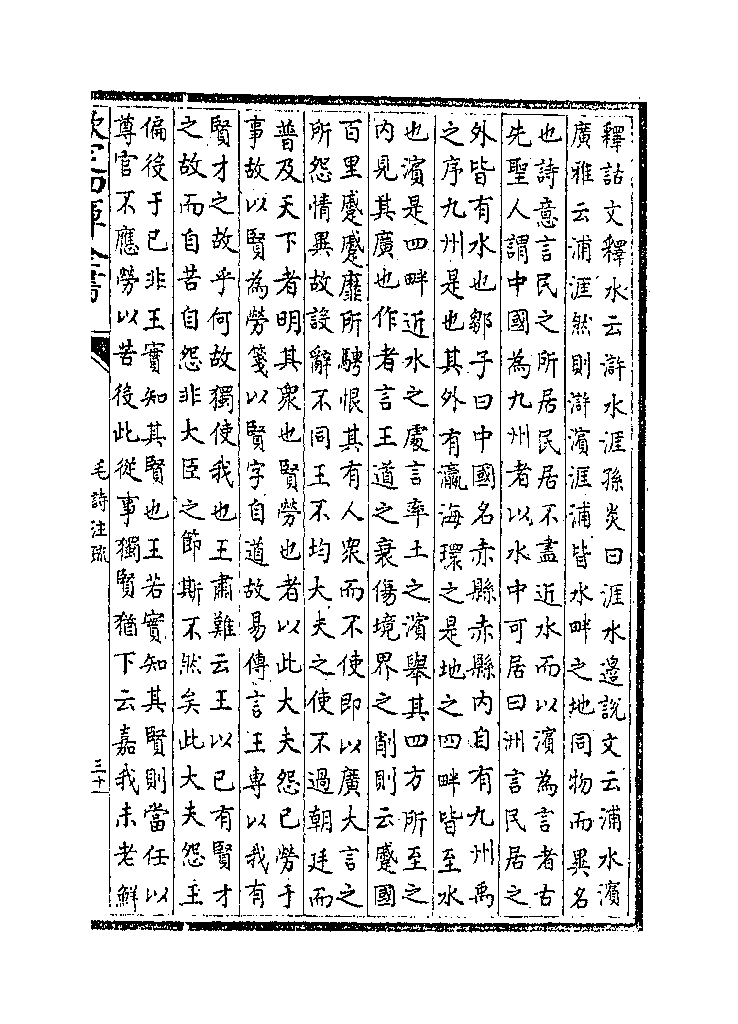 釋詁文釋水云滸水涯孫炎曰涯水邉説文云浦水濵
廣雅云浦涯然則滸濵涯浦皆水畔之地同物而異名
也詩意言民之所居民居不盡近水而以濵為言者古
先聖人謂中國為九州者以水中可居曰洲言民居之
外皆有水也鄒子曰中國名赤縣赤縣内自有九州禹
之序九州是也其外有瀛海環之是地之四畔皆至水
也濵是四畔近水之處言率土之濵舉其四方所至之
内見其廣也作者言王道之衰傷境界之削則云蹙國
百里蹙蹙靡所騁恨其有人衆而不使即以廣大言之
所怨情異故設辭不同王不均大夫之使不過朝廷而
普及天下者明其衆也賢勞也者以此大夫怨已勞于
事故以賢為勞箋以賢字自道故易傳言王専以我有
賢才之故乎何故獨使我也王肅難云王以已有賢才
之故而自苦自怨非大臣之節斯不然矣此大夫怨王
偏後于已非王實知其賢也王若實知其賢則當任以
尊官不應勞以苦後此從事獨賢猶下云嘉我未老鮮
欽定四庫全書
毛詩注疏
三十